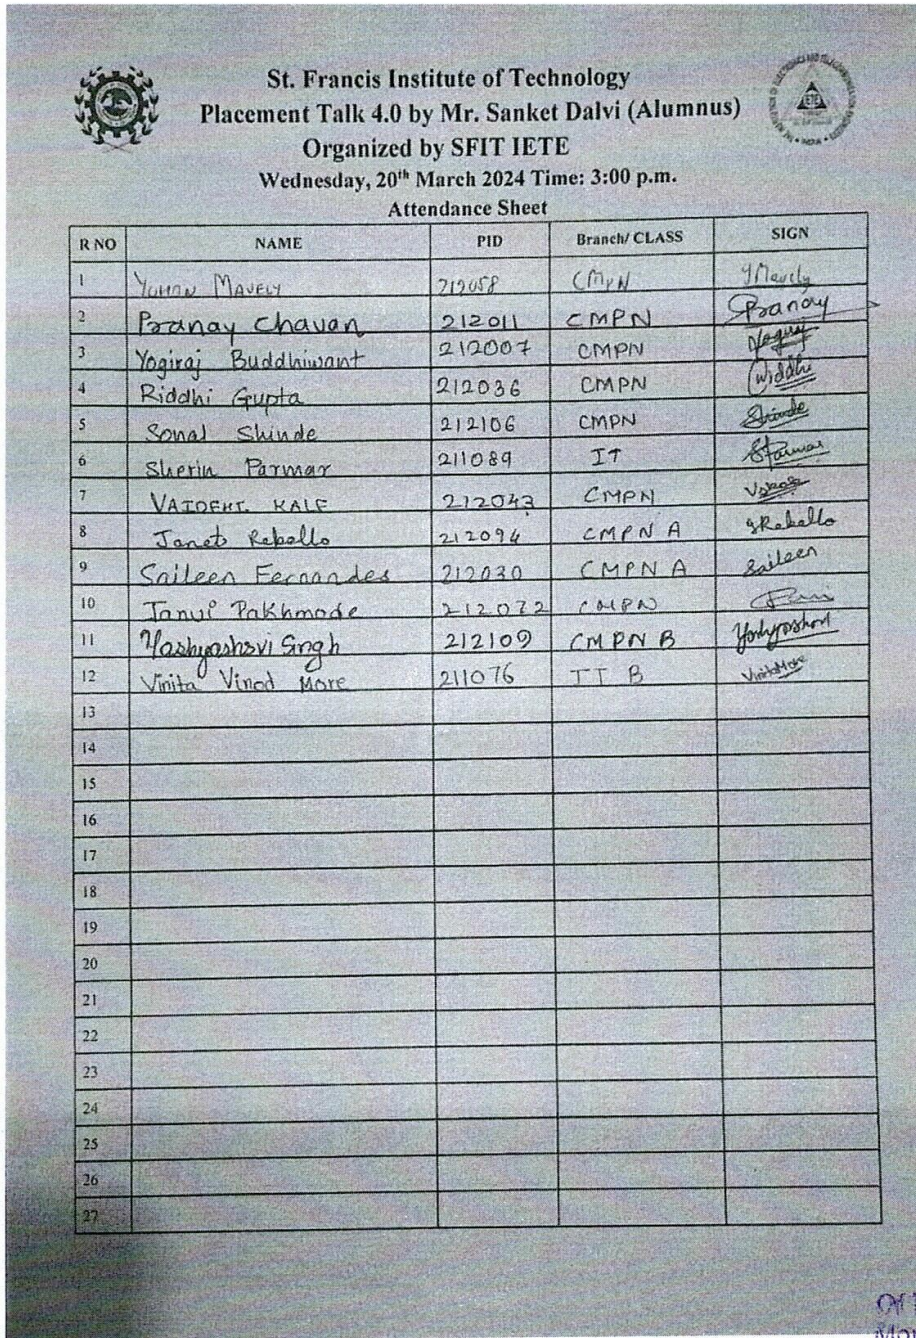 St. Francis Institute of Technology
Placement Talk 4.0 by Mr. Sanket Dalvi (Alumnus)
Organized by SFIT IETE
Wednesday, 20th March 2024 Time: 3:00 p.m.
Attendance Sheet
R NO NAME PID Branch/ CLASS SIGN
1 YOHAN MAVELY 212058 CMPN YMavely
2 Pranay Chavan 212011 CMPN Pranay
3 Yogiraj Buddhiwant 212007 CMPN
4 Riddhi Gupta 212036 CMPN Riddhi
5 Sonal Shinde 212106 CMPN Shinde
6 Sherin Parmar 211089 IT SParmar
7 VAIDEHI KALE 212043 CMPN
8 Janet Rebello 212094 CMPN A JRebello
9 Saileen Fernandes 212030 CMPN A Saileen
10 Janvi Pakhmode 212072 CMPN
11 Yashyashsvi Singh 212109 CMPN B
12 Vinita Vinod More 211076 IT B VinitaMore
13
14
15
16
17
18
19
20
21
22
23
24
25
26
27